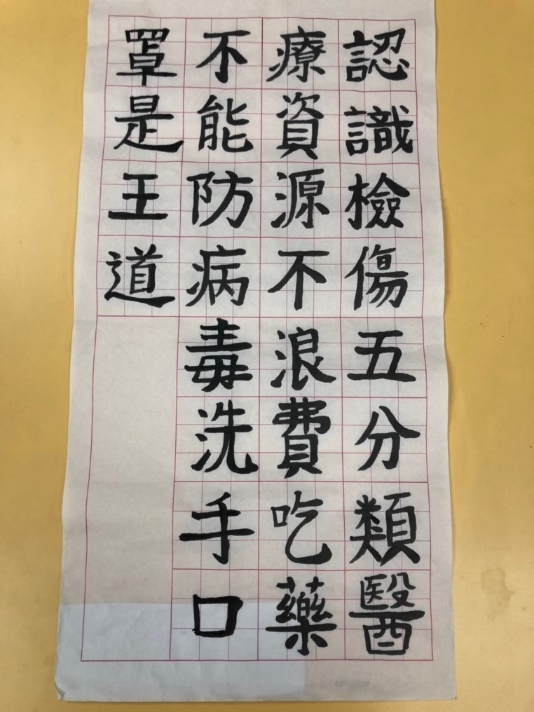 認識檢傷五分類醫
療資源不浪費吃藥
不能防病毒洗手口
罩是王道